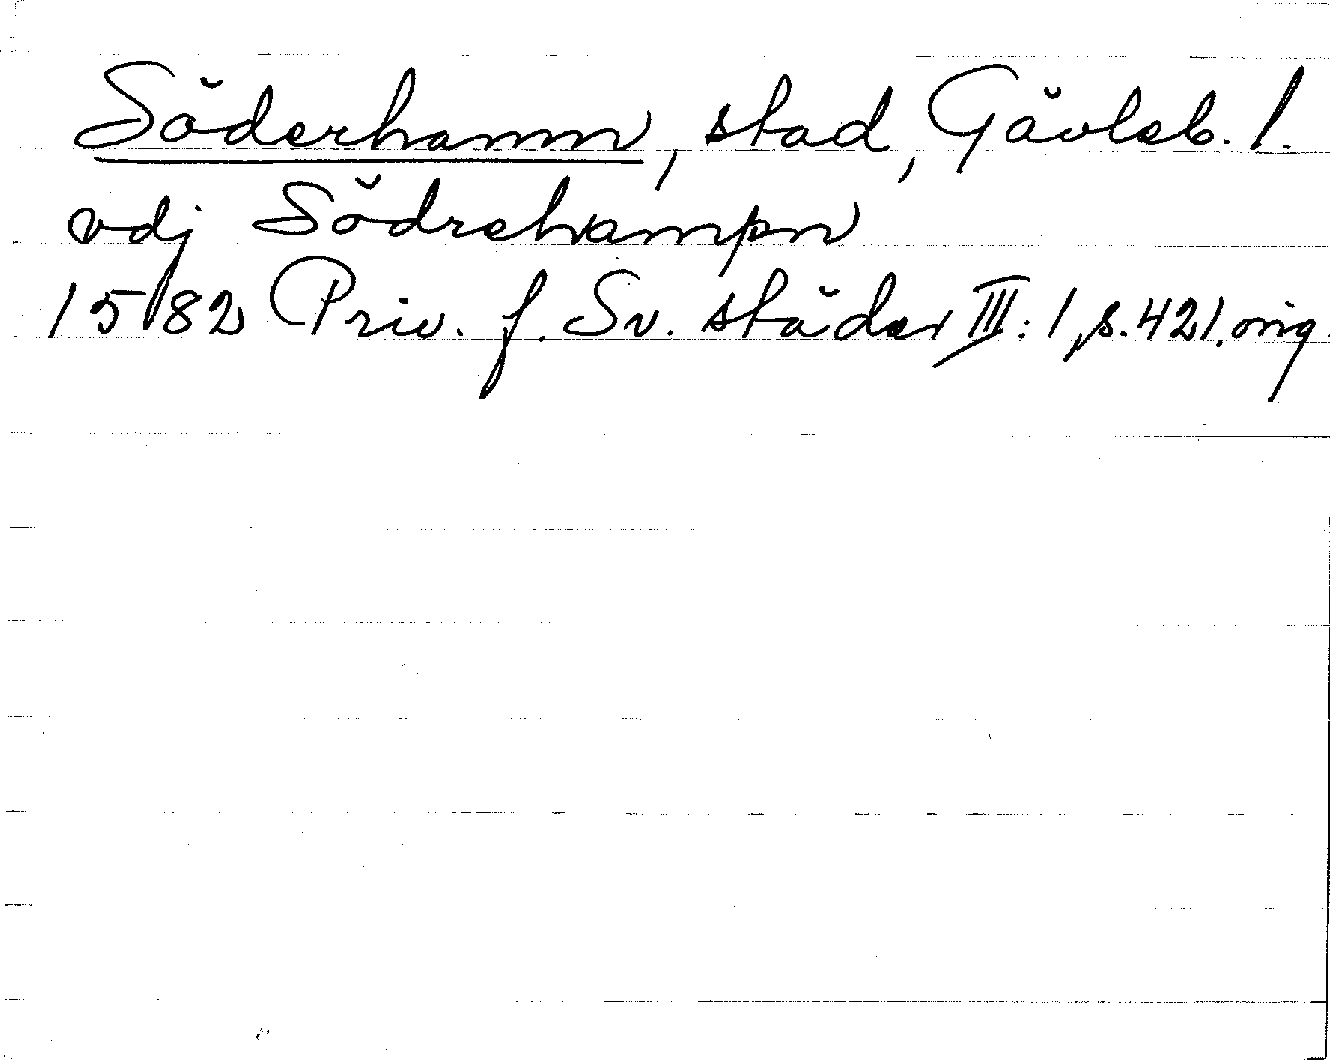 Söderhamn, stad, Gävleb. l.
vdj Södrehampn
1582 Priv. f. Sv. städer III:1, s. 421, orig.